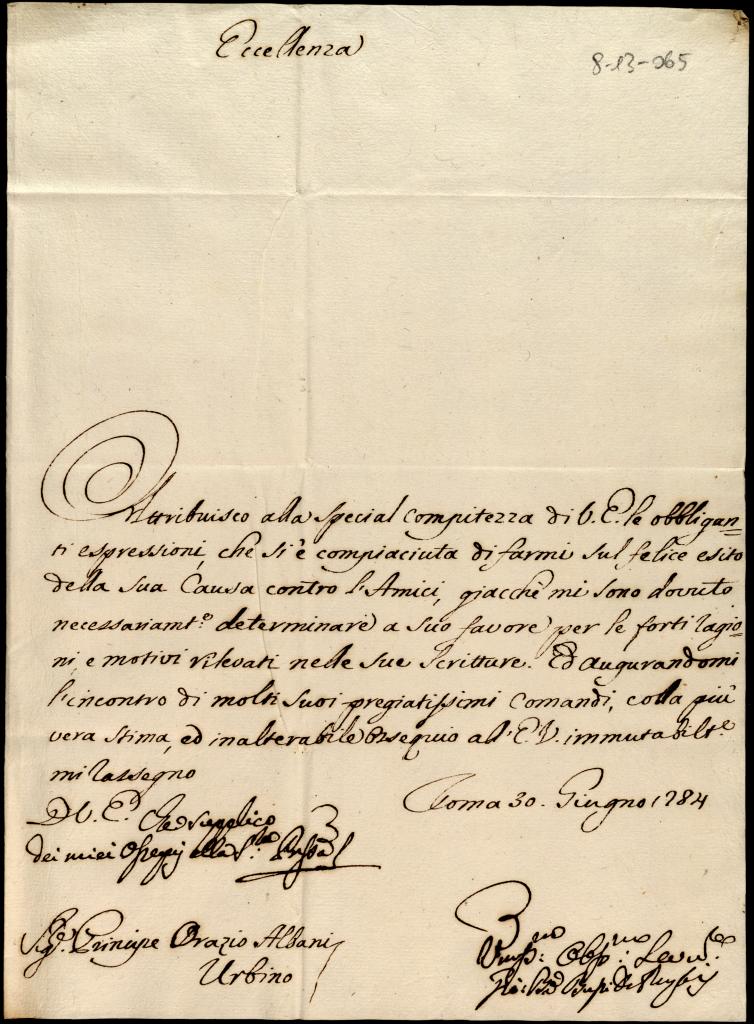 Eccellenza
8-13-065
Attribuisco alla special compitezza di V. E. le obbligan=
ti espressioni, che si è compiaciuta di farmi sul felice esito
della sua Causa contro l'Amici, giacchè mi sono dovuto
necessariamt.e determinare a suo favore per le forti ragio=
ni, e motivi rilevati nelle sue scritture. Ed augurandomi
l'incontro di molti suoi pregiatissimi comandi, colla più
vera stima, ed inalterabile ossequio all'E. V. immutabilt.e
mi rassegno
Roma 30. Giugno 1784
D V. E. che supplico
dei miei ossequj alla S.ra
Sig.e Principe Orazio Albani
Urbino